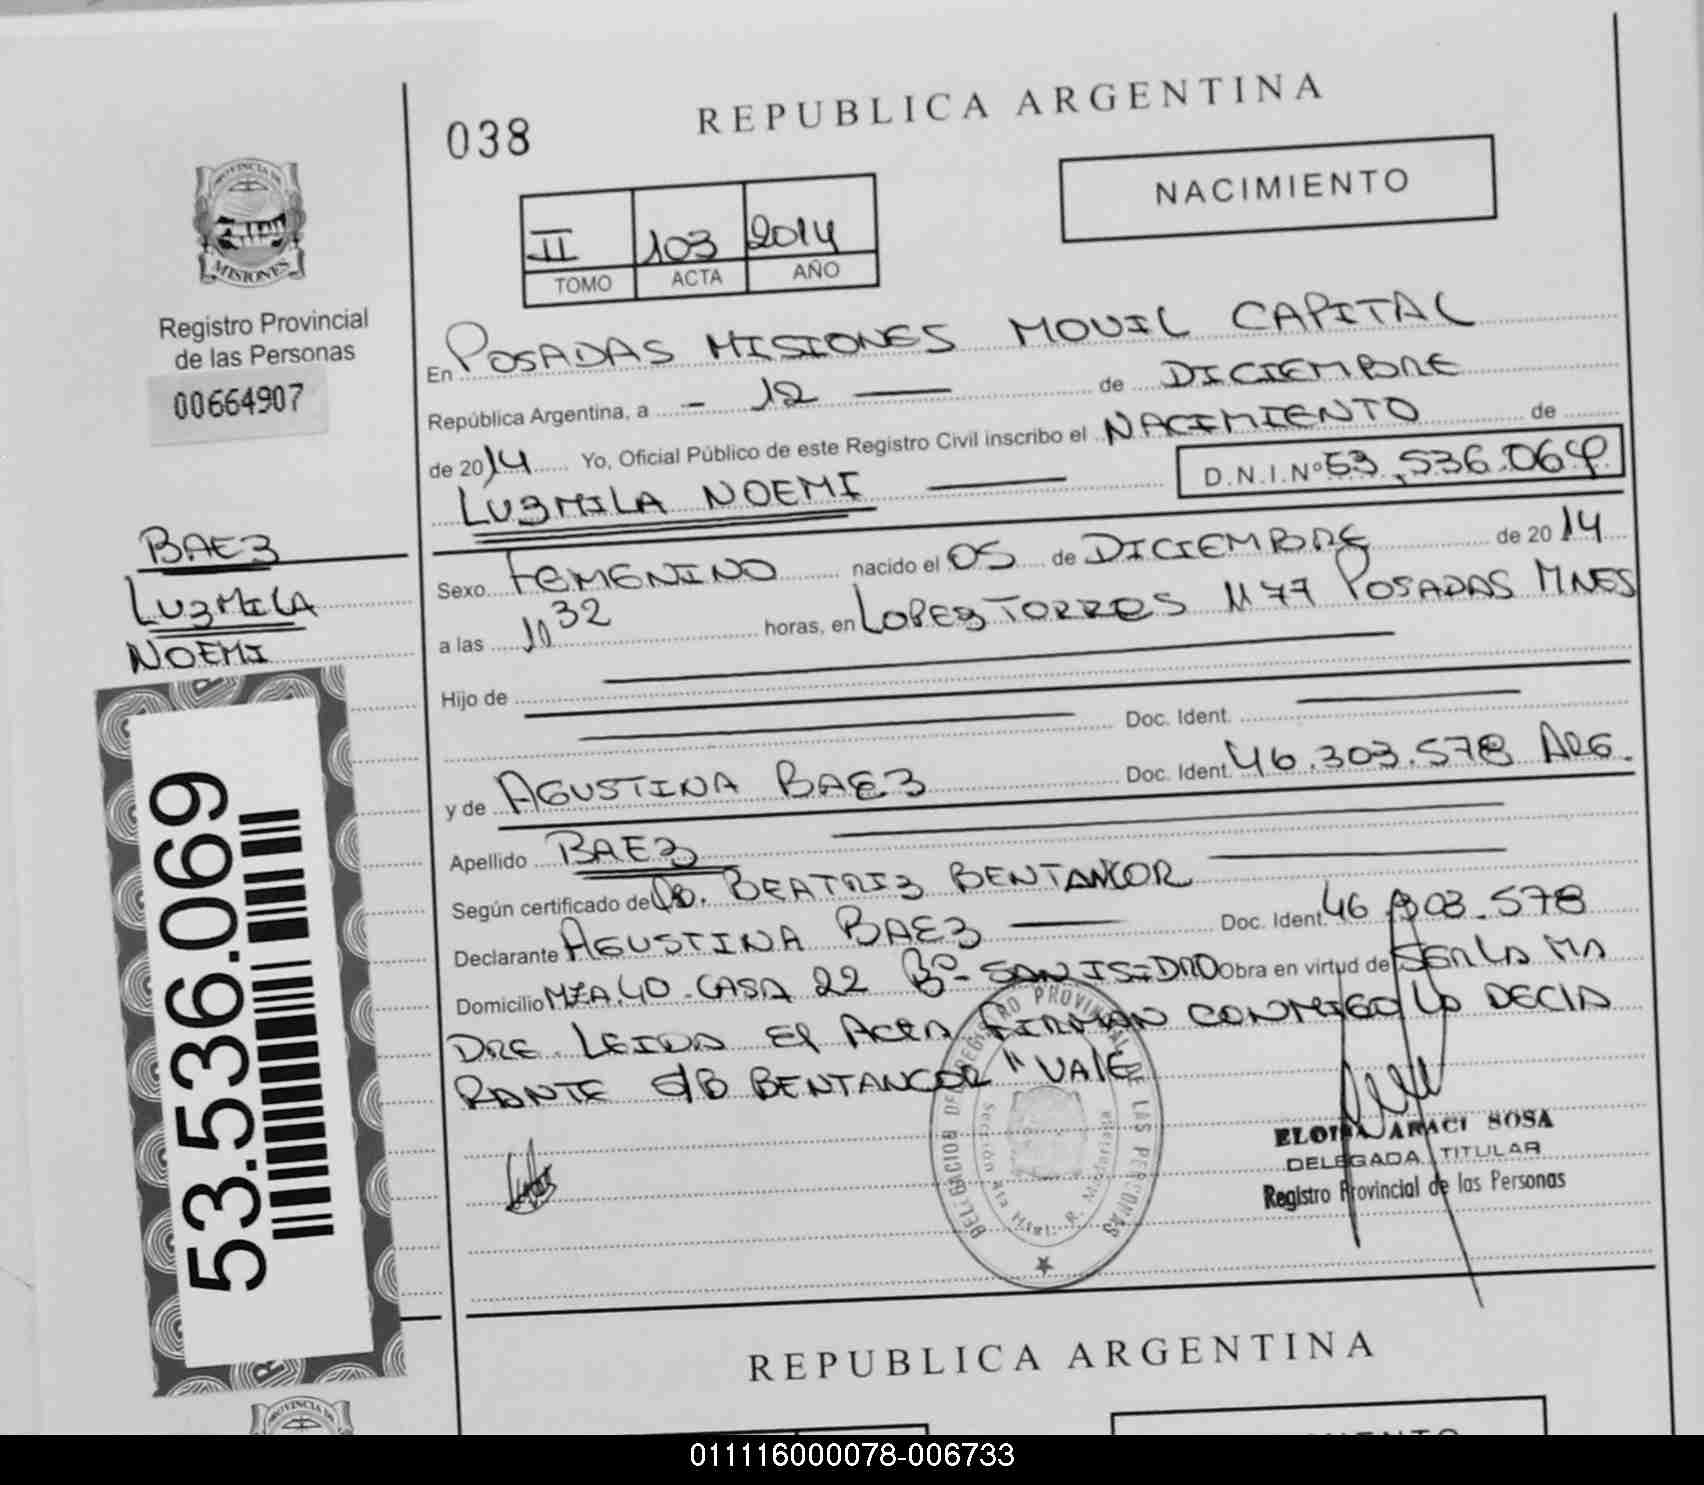 038
REPUBLICA ARGENTINA
NACIMIENTO
II 103 2014
TOMO ACTA AÑO
PROVINCIA DE
MISIONES
Registro Provincial
de las Personas
00664907
En POSADAS MISIONES MOVIL CAPITAL
República Argentina, a - 12 — de DICIEMBRE
de 2014 Yo, Oficial Público de este Registro Civil inscribo el NACIMIENTO de
LUZMILA NOEMI — D.N.I.Nº 53.536.069
BAEZ
LUZMILA
NOEMI
Sexo FEMENINO nacido el 05 de DICIEMBRE de 2014
a las 10 32 horas, en LOPEZ TORRES 1177 POSADAS MNES
Hijo de
Doc. Ident.
y de AGUSTINA BAEZ Doc. Ident. 46.303.578 ARG.
Apellido BAEZ
Según certificado de BEATRIZ BENTANCOR
Declarante AGUSTINA BAEZ — Doc. Ident. 46.303.578
Domicilio MZA.40 - CASA 22 Bº- SAN ISIDRO Obra en virtud de SER LA MA
DRE. LEIDA El ACTA FIRMAN CONMIGO LA DECLA
RANTE BENTANCOR "VALE
53.536.069
DELEGACION DEL REGISTRO PROVINCIAL DE LAS PERSONAS
ELOISA ARACI SOSA
DELEGADA TITULAR
Registro Provincial de las Personas
REPUBLICA ARGENTINA
PROVINCIA DE
011116000078-006733